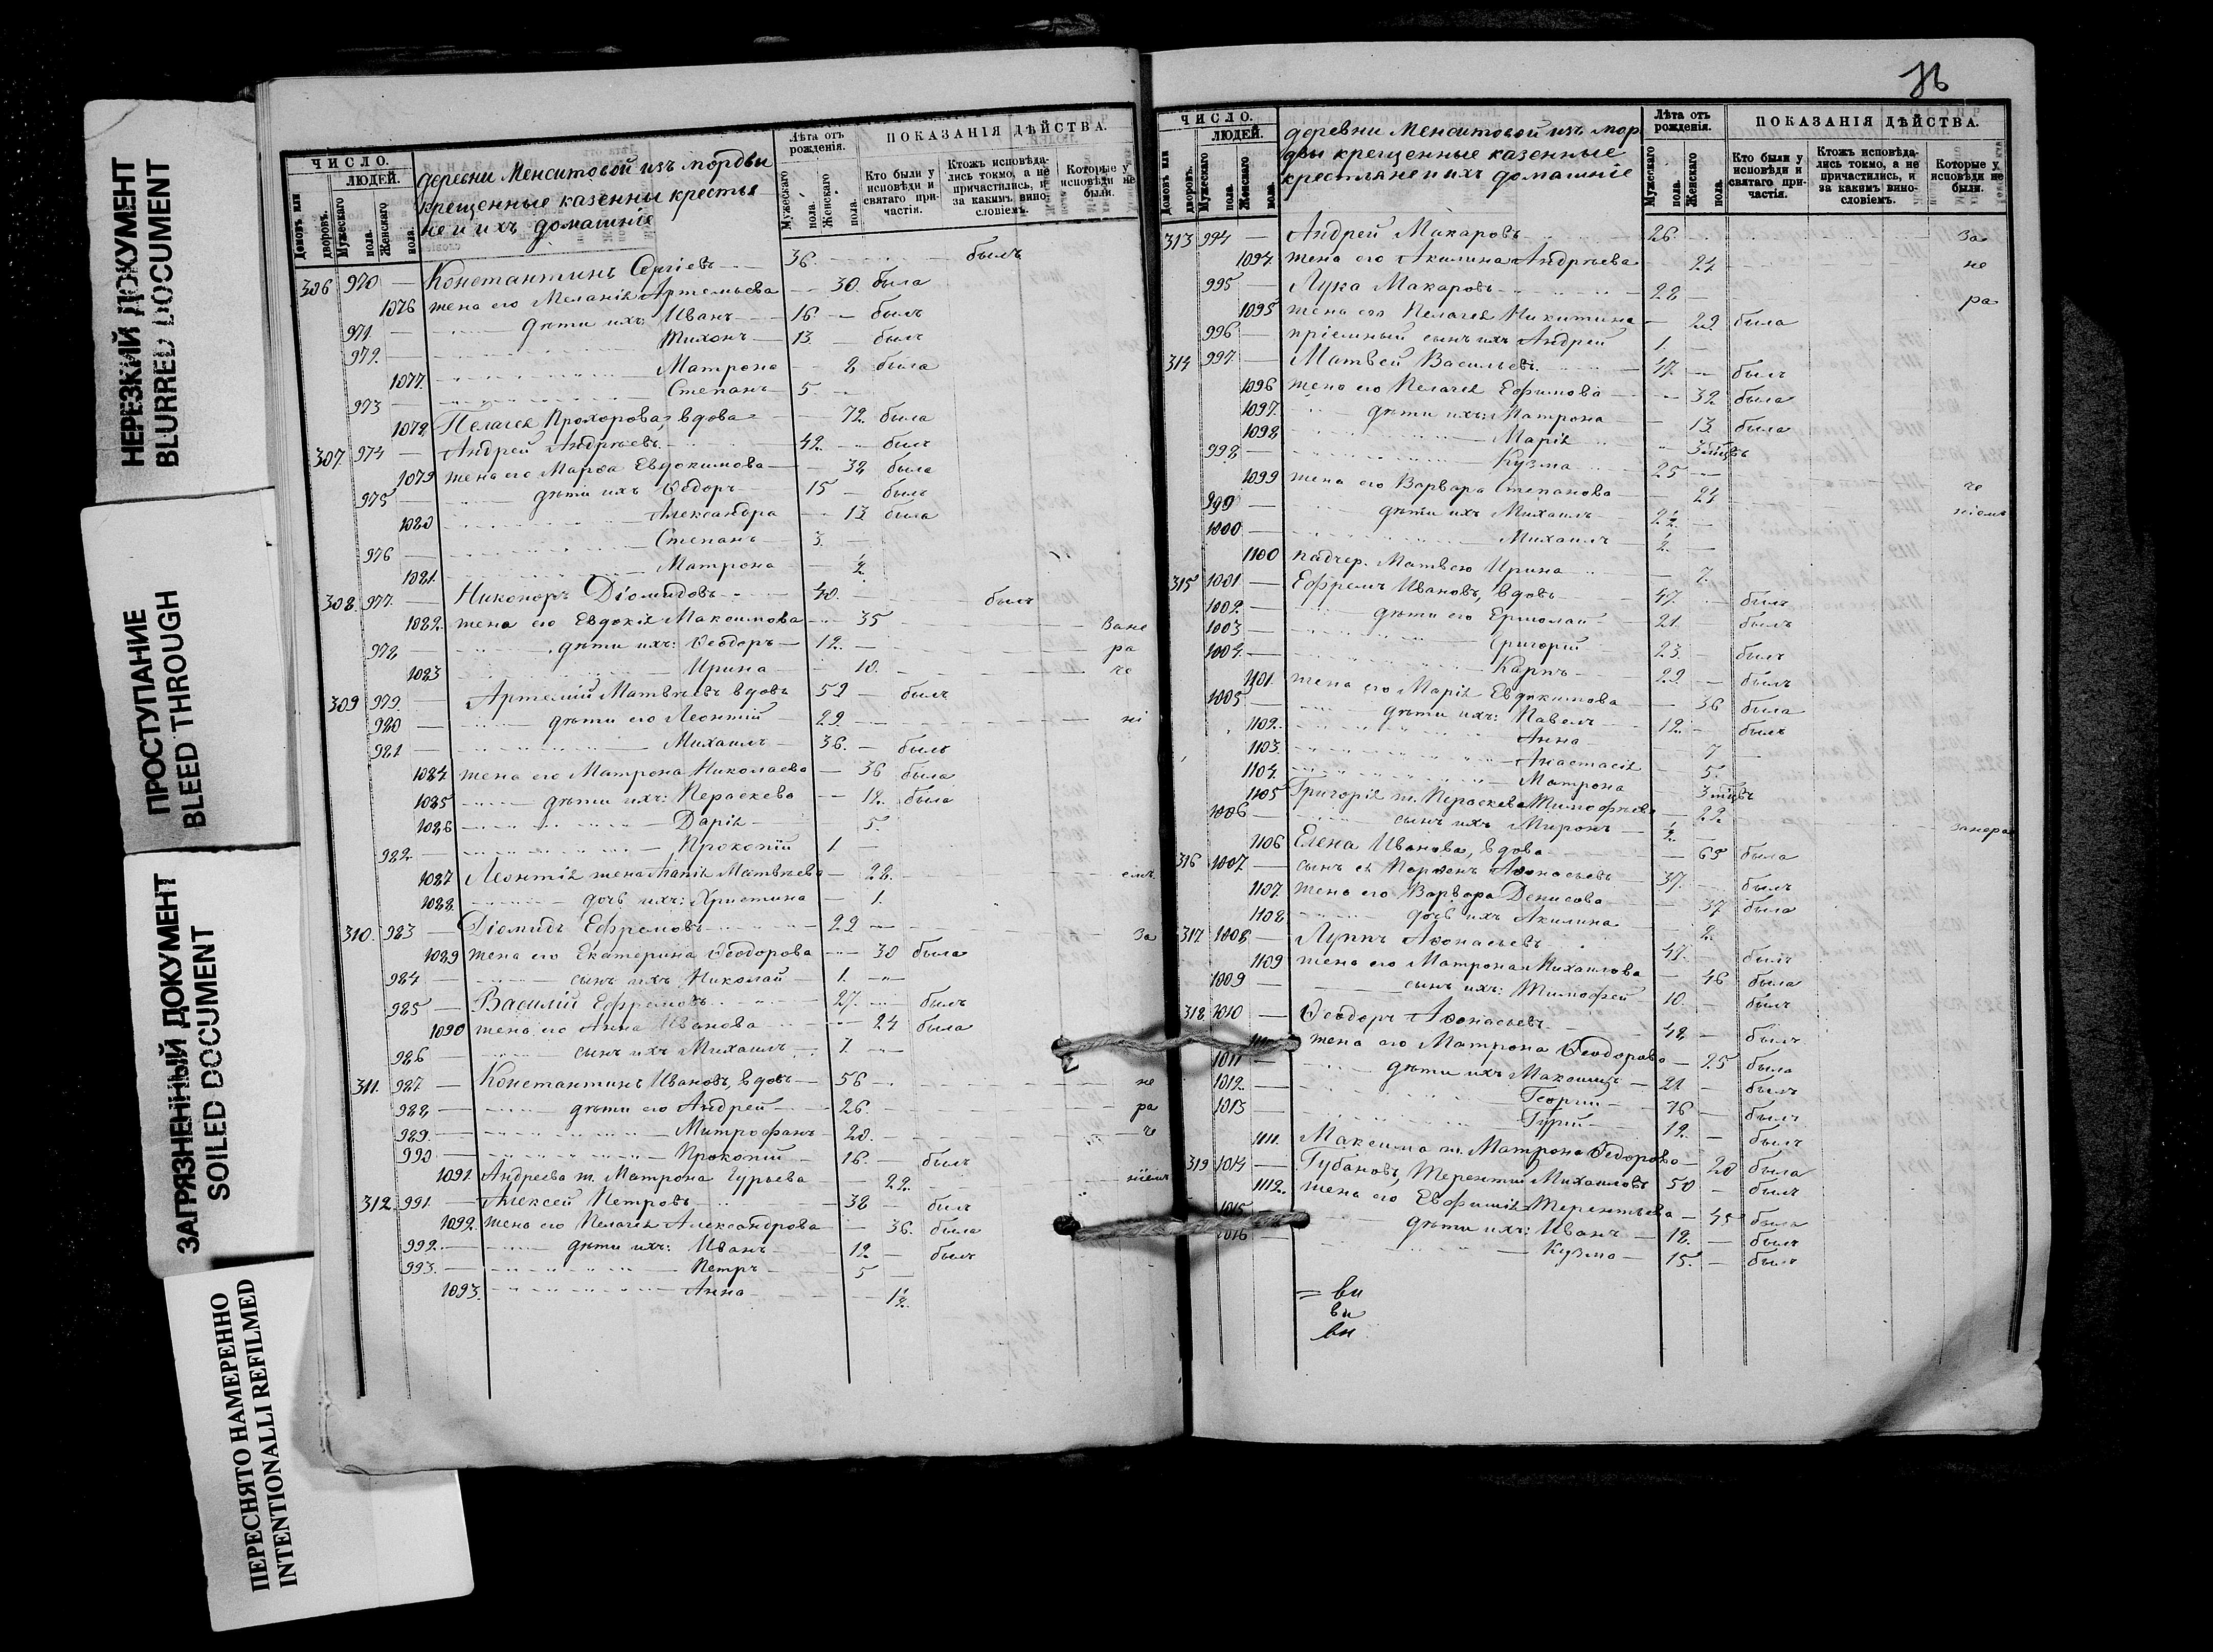 НЕРЕЗКИЙ ДОКУМЕНТ
BLURRED DOCUMENT
ПРОСТУПАНИЕ
BLEED THROUGH
ЗАГРЯЗНЕННЫЙ ДОКУМЕНТ
SOILED DOCUMENT
ПЕРЕСНЯТО НАМЕРЕННО
INTENTIONALLI REFILMED
ЧИСЛО.
ЛЮДЕЙ.
Домовъ или дворовъ.
Мужескаго пола.
Женскаго пола.
деревни Менситовой изъ мордвы
крещенные казенны крестья
не и ихъ домашніе
Лѣта отъ рожденія.
Мужескаго пола.
Женскаго пола.
ПОКАЗАНІЯ ДѢЙСТВА.
Кто были у исповѣди и святаго причастія.
Ктожъ исповѣдались токмо, а не причастились, и за какимъ винословіемъ.
Которые у исповѣди не были.
306 970 — Константинъ Сергіевъ 36 былъ
1076 жена его Меланія Артемьева 30 была
971 дѣти ихъ: Иванъ 16 былъ
972 Тихонъ 13 былъ
1077 Матрона 8 была
973 Степанъ 5
1078 Пелагея Прохорова, вдова 72 была
307 974 — Андрей Андреевъ 42 былъ
1079 жена его Марѳа Евдокимова 38 была
975 дѣти ихъ Ѳедоръ 15 былъ
1080 Александра 13 была
976 Степанъ 3
1081 Матрона ½
308 977 Никоноръ Діомидовъ 40 былъ
1082 жена его Евдокія Максимова 35 За не
978 дѣти ихъ: Ѳеодоръ 12 ра
1083 Ирина 10 че
309 979 Артемій Матвѣевъ вдовъ 59 былъ
980 дѣти его Леонтій 29 ні
981 Михаилъ 36 былъ
1084 жена его Матрона Николаева 36 была
1085 дѣти ихъ: Параскева 12 была
1086 Дарія 5
982 Прокопій 1
1087 Леонтія жена Матвѣева 28 емъ
1088 дочь ихъ: Христина 1
310 983 — Діомидъ Ефремовъ 29 За
1089 жена его Екатерина Ѳеодорова 30 была
984 сынъ ихъ Николай 1
985 — Василій Ефремовъ 27 былъ
1090 жена его Анна Иванова 24 была
986 сынъ ихъ Михаилъ 1
311 987 — Константинъ Ивановъ, вдовъ 56 не
988 дѣти его Андрей 26 ра
989 Митрофанъ 20 че
990 Прокопій 16 былъ
1091 Андреева ж. Матрона Гурьева 22 ніемъ
312 991 — Алексей Петровъ 38 былъ
1092 жена его Пелагея Александрова 36 была
992 дѣти ихъ: Иванъ 12 былъ
993 Петръ 5
1093 Анна 1½
ЧИСЛО.
ЛЮДЕЙ.
Домовъ или дворовъ.
Мужескаго пола.
Женскаго пола.
деревни Менситовой изъ мор
двы крещенные казенные
крестьяне и ихъ домашніе
Лѣта отъ рожденія.
Мужескаго пола.
Женскаго пола.
ПОКАЗАНІЯ ДѢЙСТВА.
Кто были у исповѣди и святаго причастія.
Ктожъ исповѣдались токмо, а не причастились, и за какимъ винословіемъ.
Которые у исповѣди не были.
313 994 — Андрей Макаровъ 26 За
1094 жена его Акилина Андреева 24 не
995 — Лука Макаровъ 28 ра
1095 жена его Пелагея Никитина 29 была
996 пріемный сынъ ихъ Андрей 1
314 997 — Матвей Васильевъ 47 былъ
1096 жена его Пелагея Ефимова 32 была
1097 дѣти ихъ: Матрона 13 была
1098 Марія 3 мѣсц
998 Кузма 25
1099 жена его Варвара Степанова 24 че
999 дѣти ихъ Михаилъ 2½ ніемъ
1000 Михаилъ ½
1100 падчер. Матвею Ирина 7
315 1001 — Ефремъ Ивановъ, вдовъ 47 былъ
1002 дѣти его Ермолай 21 былъ
1003 Григорій 23 былъ
1004 Карпъ 29 былъ
1101 жена его Марія Евдокимова 36 была
1005 дѣти ихъ: Павелъ 12 былъ
1102 Анна 7
1103 Анастасія 5
1104 Матрона 3 мѣсц
1105 Григорія ж. Параскева Тимофеева 22 занера
1006 сынъ ихъ Миронъ ½
1106 Елена Иванова, вдова 65 была
316 1007 — сынъ ея Парѳенъ Аѳонасьевъ 37 былъ
1107 жена его Варвара Денисова 37 была
1108 дочь ихъ Акилина 2
317 1008 — Луппъ Аѳонасьевъ 47 былъ
1109 жена его Матрона Михаилова 46 была
1009 сынъ ихъ: Тимофей 10 былъ
318 1010 — Ѳеодоръ Аѳонасьевъ 48 былъ
жена его Матрона Ѳеодорова 25 была
1011 дѣти ихъ Максимъ 21 былъ
1012 Георгій 16 былъ
1013 Гурій 12 былъ
1111 Максима ж. Матрона Ѳедорова 20 была
319 1014 — Губановъ, Терентій Михаиловъ 50 былъ
1112 жена его Евфимія Терентьева 45 была
1015 дѣти ихъ: Иванъ 18 былъ
1016 Кузма 15 былъ